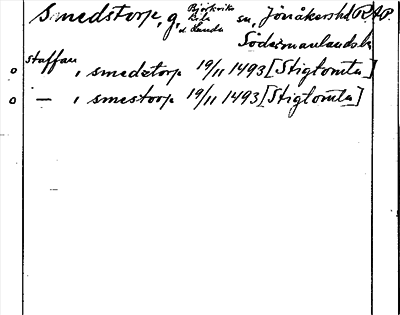 Smedstorp, g, Björkviks sn, Jönåkers hd RAP.
Södermanlands l.
staffan
o , smedztorp 19/11 1493 [Stigtomta]
o — , smestorp 19/11 1493 [Stigtomta]